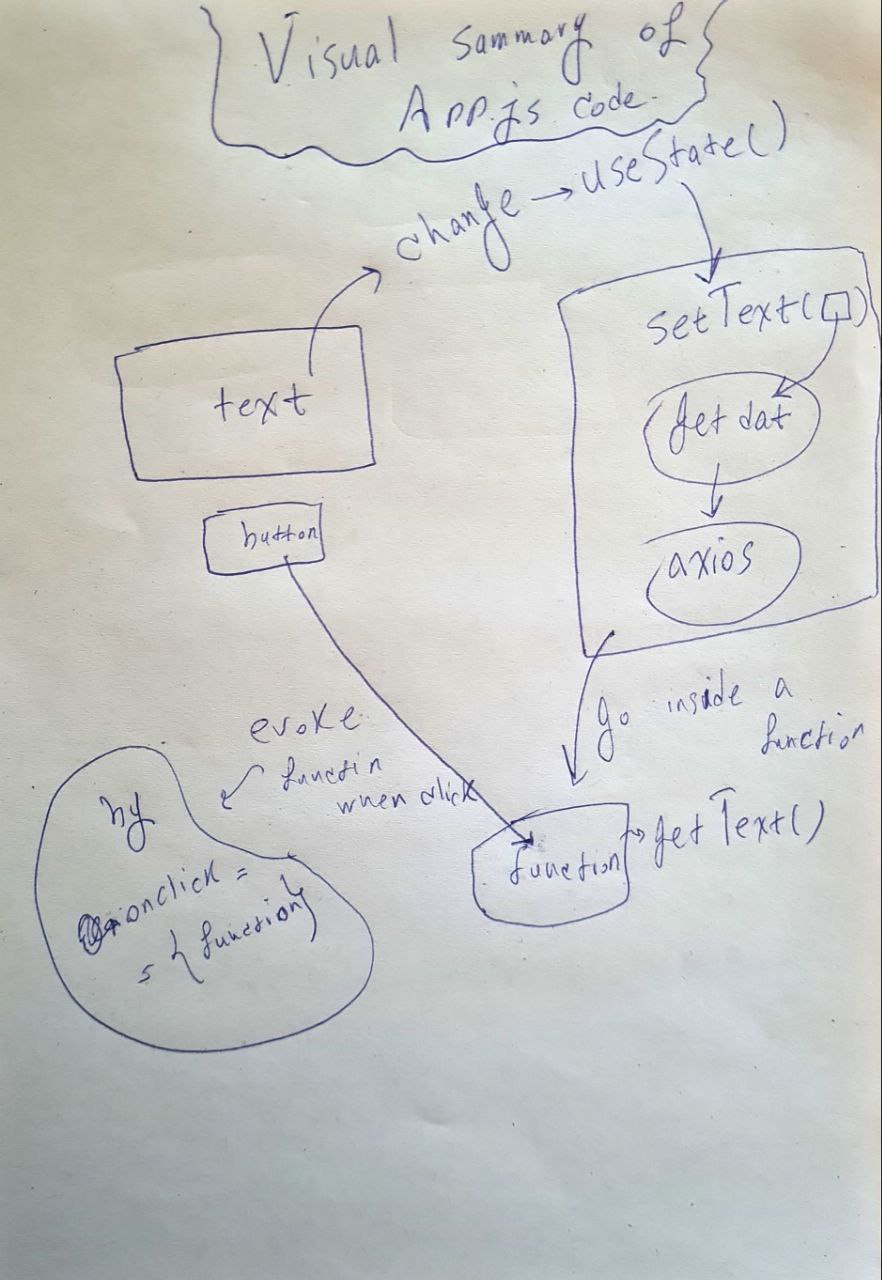 Visual sammary of
App.js code.
change → useState()
setText(□)
text
get dat
button
axios
go inside a
function
evoke
functin
when click
by
onclick =
= { function}
function → getText()